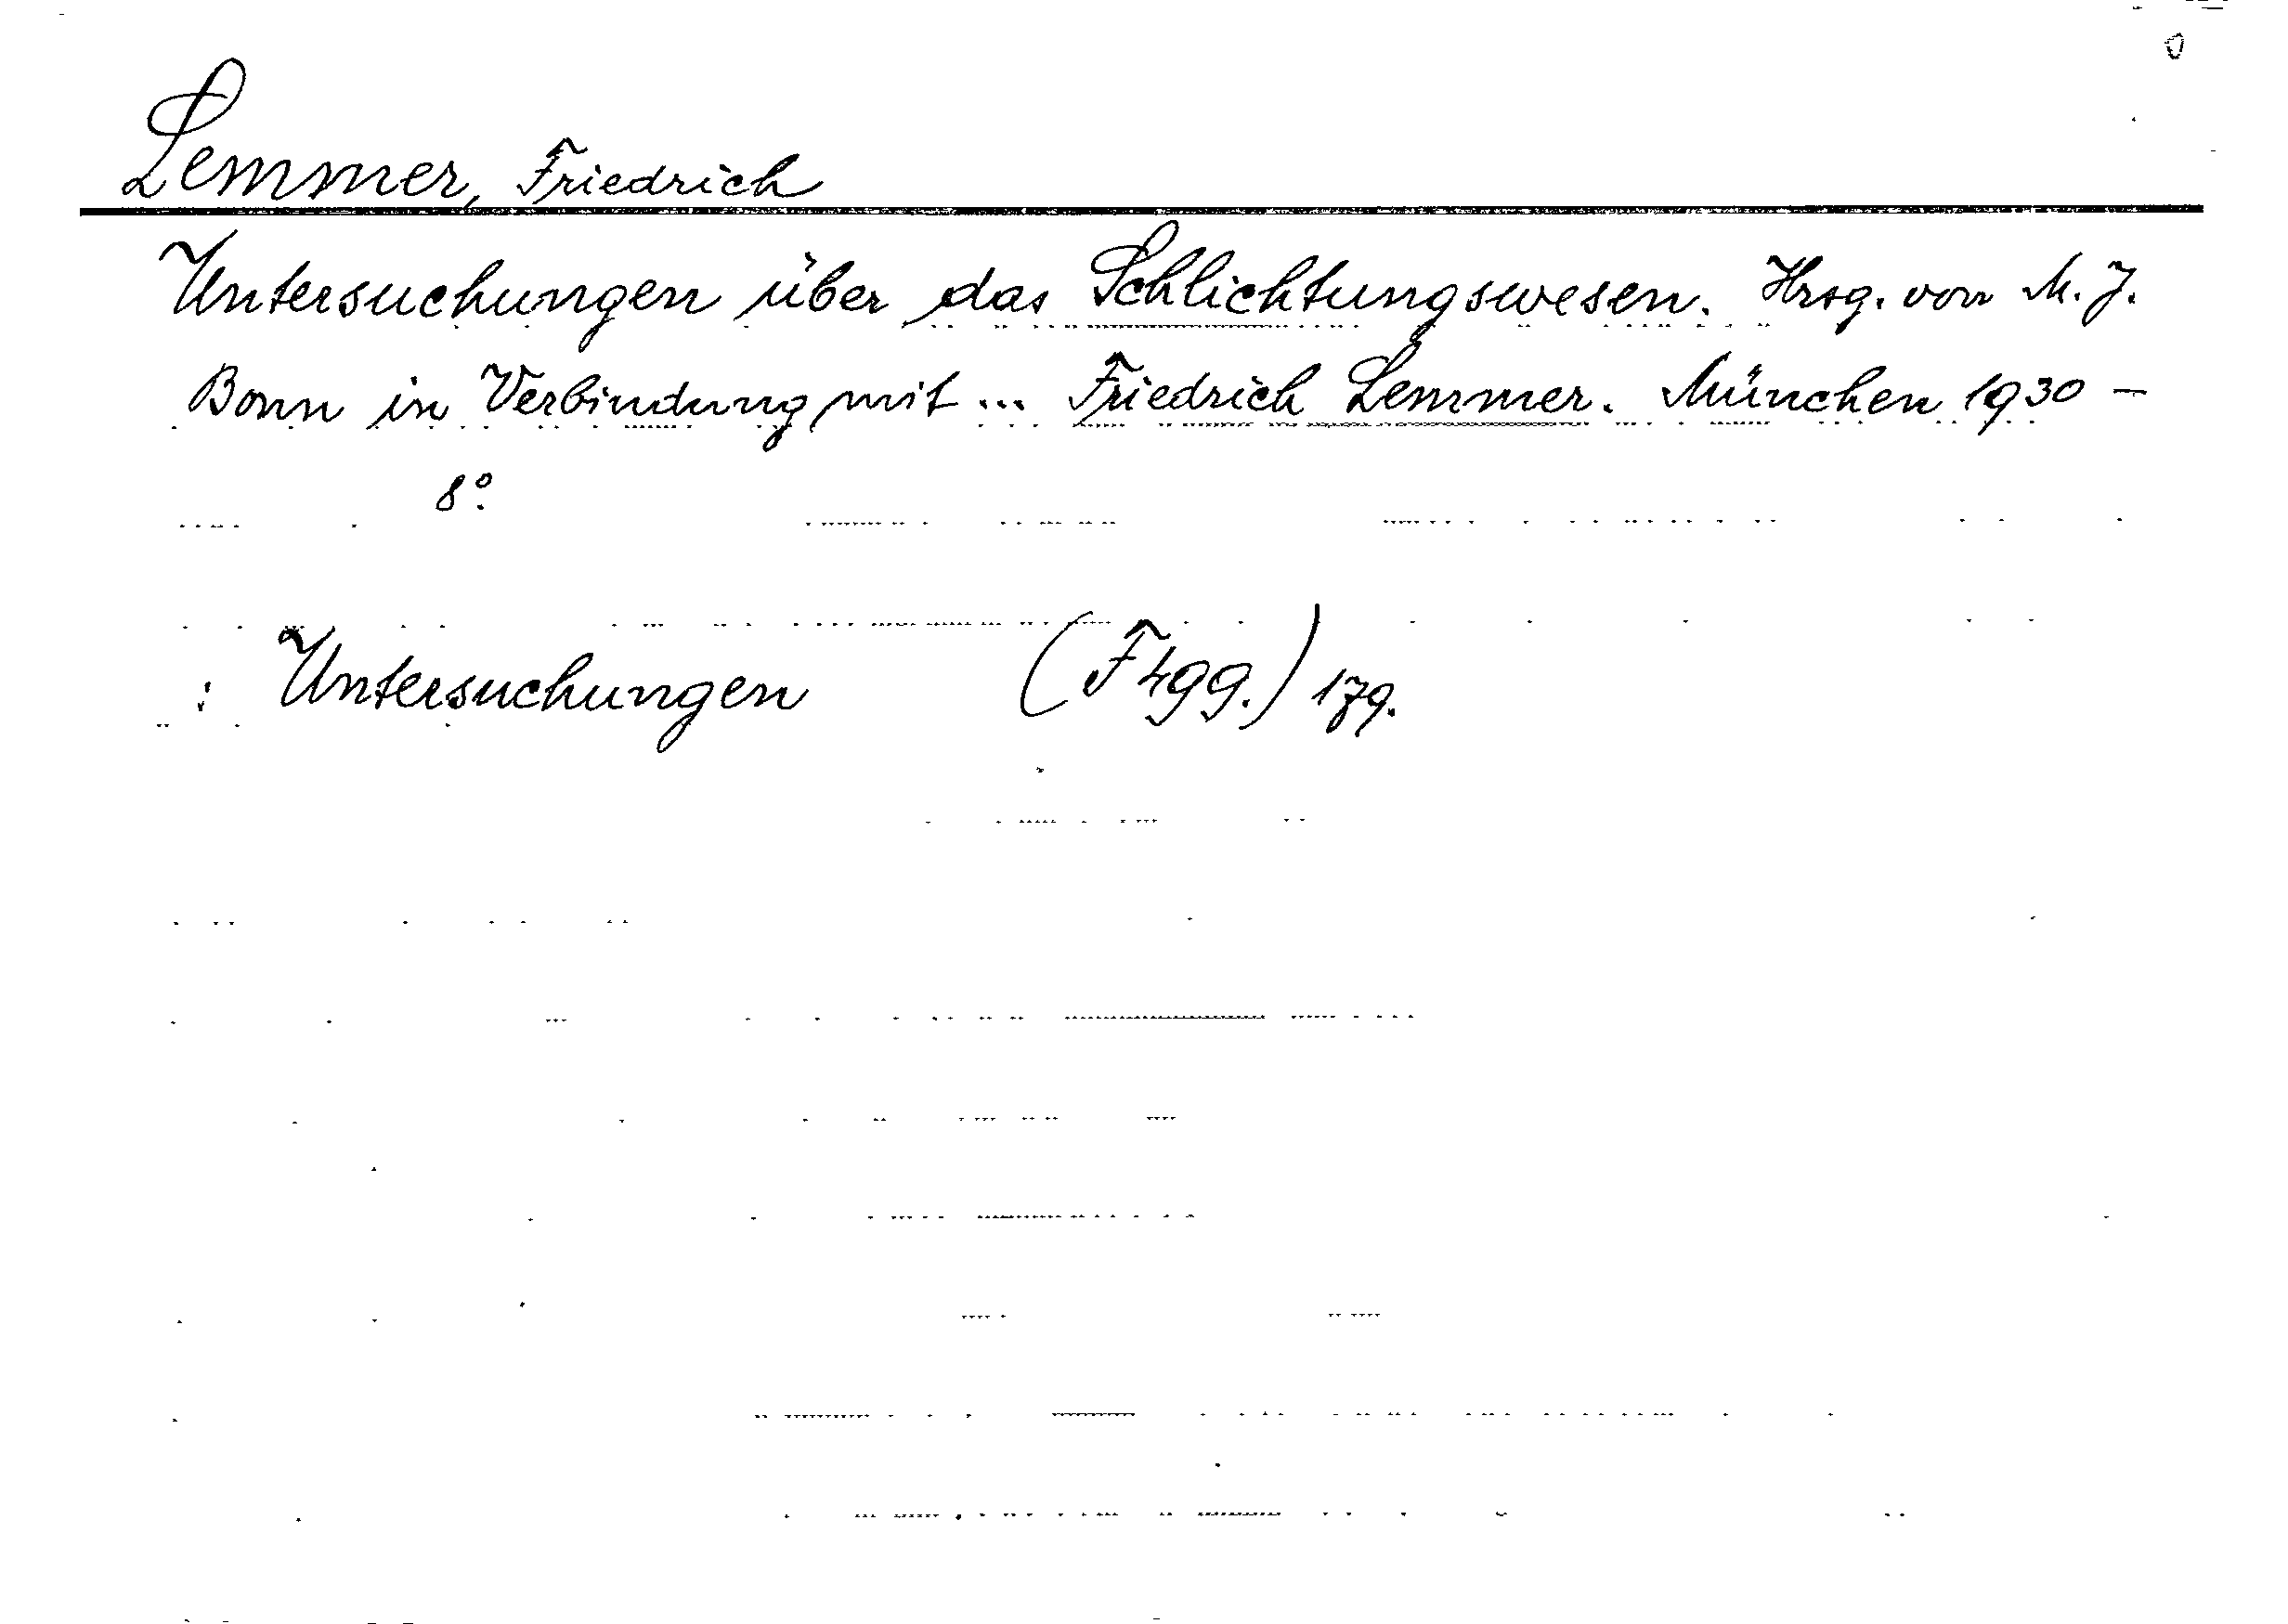 Lemmer, Friedrich
Untersuchungen über das Schlichtungswesen. Hrsg. von M. J.
Bonn in Verbindung mit ... Friedrich Lemmer. München 1930 –
8°.
: Untersuchungen (F 499.) 179.